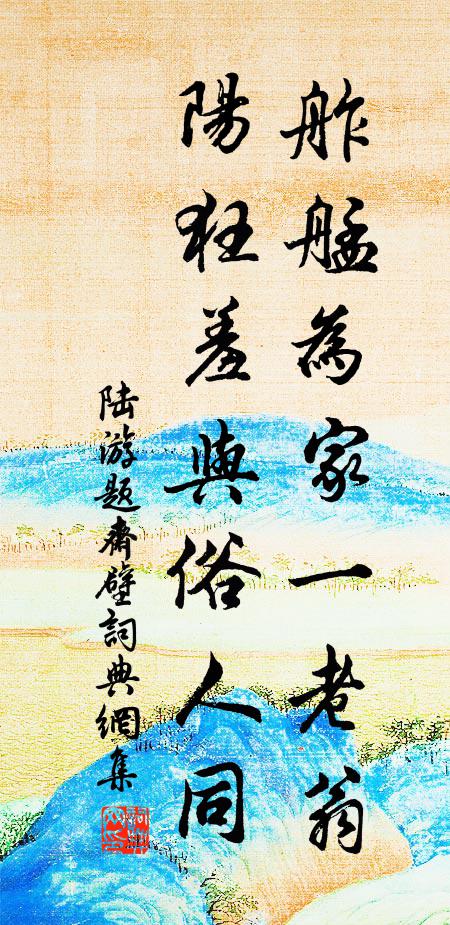 舴艋為家一老翁
陽狂羞與俗人同
陸游題齋壁詞典網集